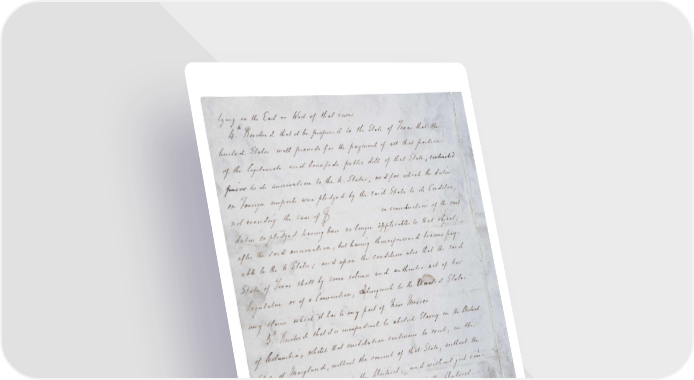 lying on the East or West of that river
4th Resolved that it be proposed to the State of Texas that the
United States will provide for the payment of all that portion
of the legitimate and bonafide public debt of that State, contracted
prior to its annexation to the U. States, and for which the duties
on Foreign imports were pledged by the said State to its Creditors,
not exceeding the sum of $ in consideration of the said
duties so pledged having been no longer applicable to that object,
after the said annexation, but having thenceforward become pay-
able to the U States; and upon the condition also that the said
State of Texas shall by some solemn and authentic act of her
Legislature or of a Convention, relinquish to the United States
any claim which it has to any part of New Mexico
5th Resolved that it is inexpedient to abolish Slavery in the District
of Columbia, whilst that institution continues to exist in the
State of Maryland, without the consent of that State, without the
District, and without just com-
District